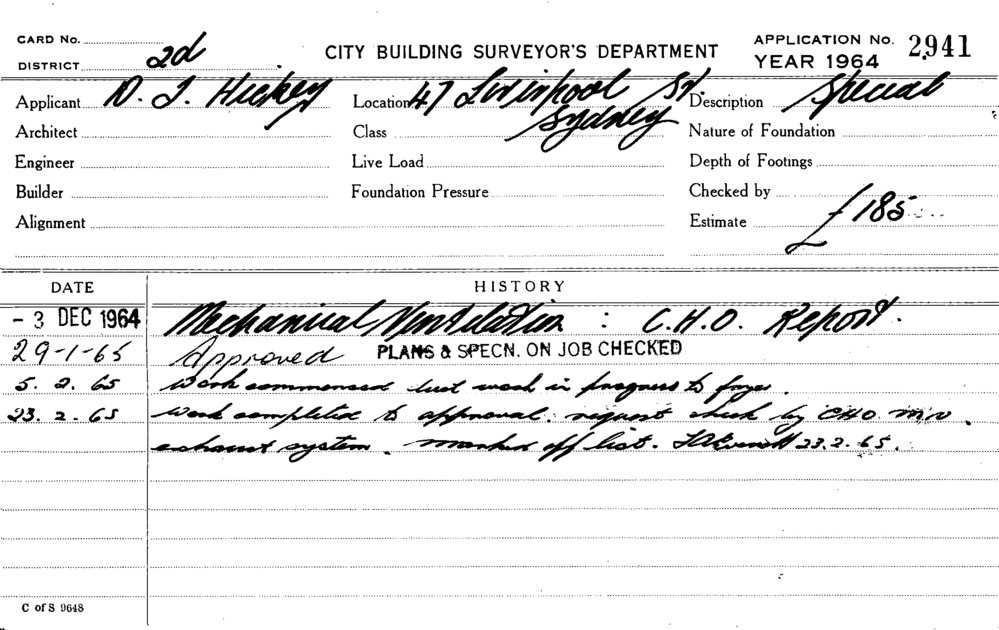 CARD No.
DISTRICT 2d
CITY BUILDING SURVEYOR'S DEPARTMENT
APPLICATION No. 2,941
YEAR 1964
Applicant D. J. Hickey Location 47 Liverpool St. Description Special
Sydney
Architect Class Nature of Foundation
Engineer Live Load Depth of Footings
Builder Foundation Pressure Checked by
Alignment Estimate £185
DATE HISTORY
- 3 DEC 1964 Mechanical Ventilation : C.H.O. Report.
29-1-65 Approved PLANS & SPECN. ON JOB CHECKED
5. 2. 65 Work commenced duct work in progress to foyer.
23. 2. 65 Work completed to approval. request check by CHO.
exhaust system. marked off list. 23.2.65.
C of S 9648